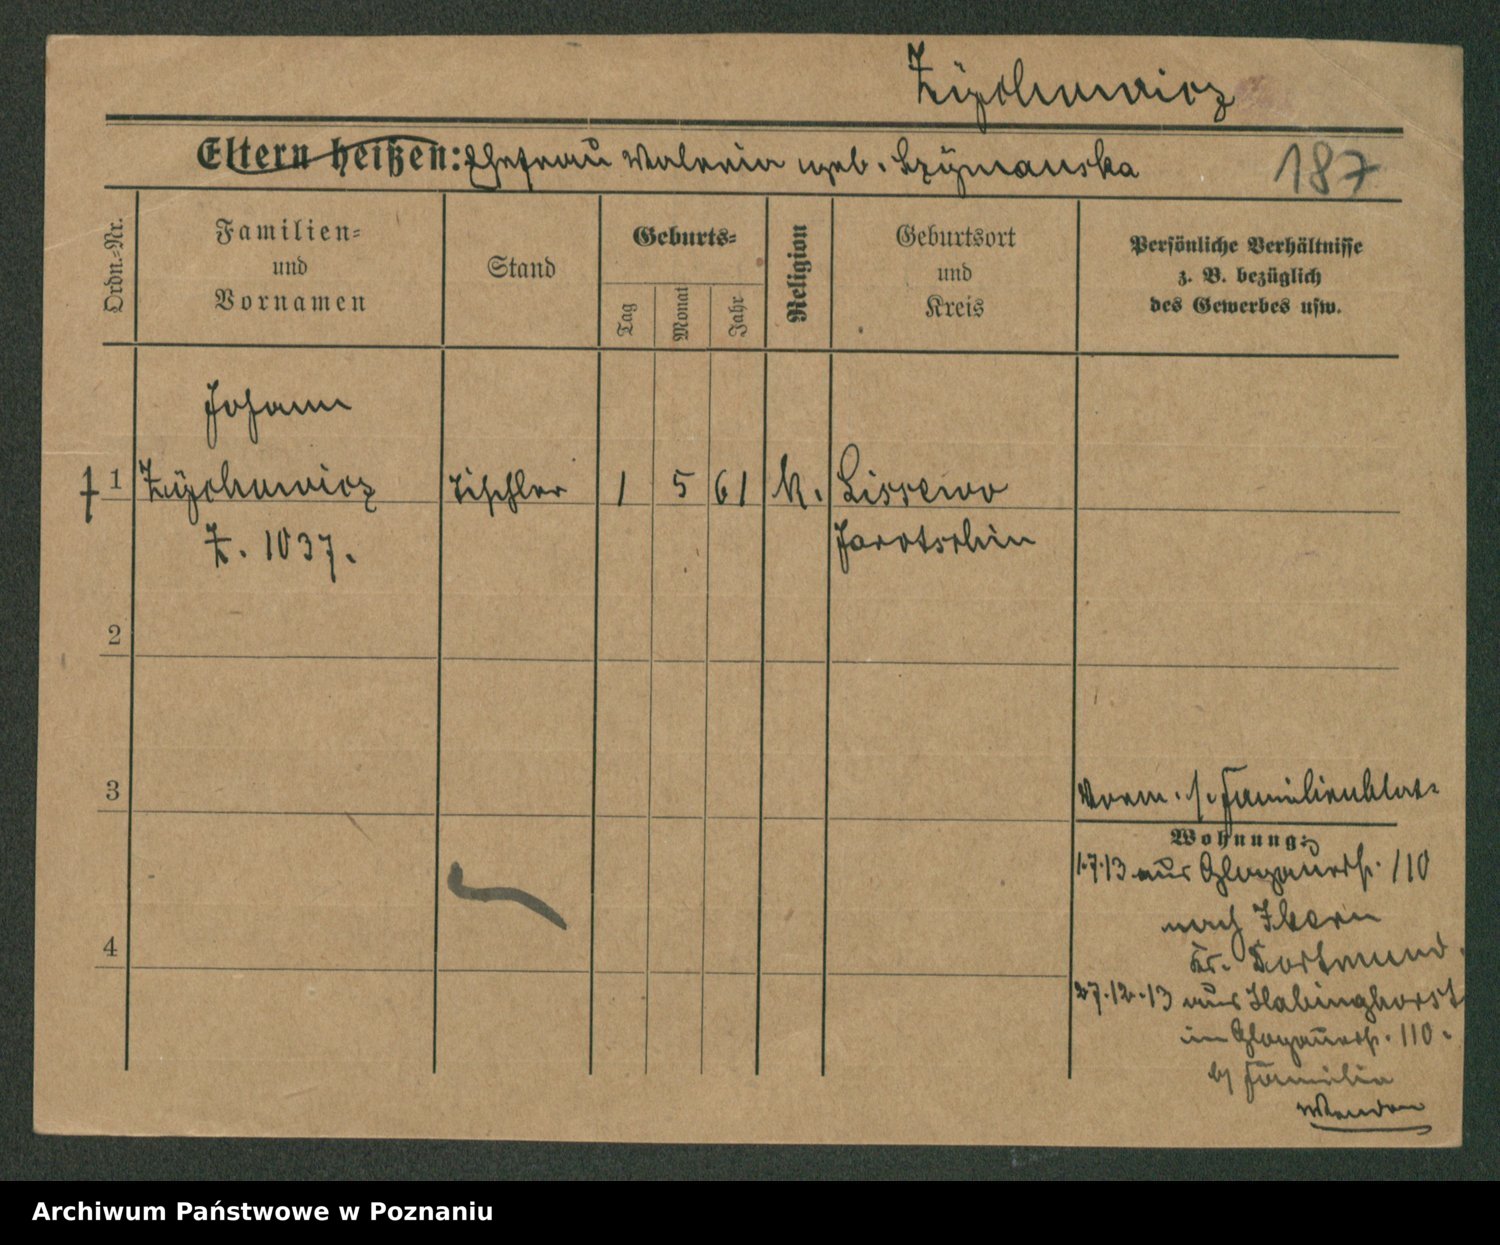 Zÿchowicz
Eltern heißen: Ehefrau Valeria geb. Szymanska
187
Ordn.=Nr.
Familien=
und
Vornamen
Stand
Geburts=
Tag
Monat
Jahr
Religion
Geburtsort
und
Kreis
Persönliche Verhältnisse
z. B. bezüglich
des Gewerbes usw.
Johann
1 Zÿchowicz Tischler 1 5 61 k. Lissewo
Z. 1037. Jarotschin
2
3
Vorm. s. Familienblat=
Wohnung:
1.7.13 aus Glogauerst. 110
nach Ikern
Kr. Dortmund.
4
27.12.13 aus Habinghorst
in Glogauerst. 110.
b/ Familie
Wenden
Archiwum Państwowe w Poznaniu